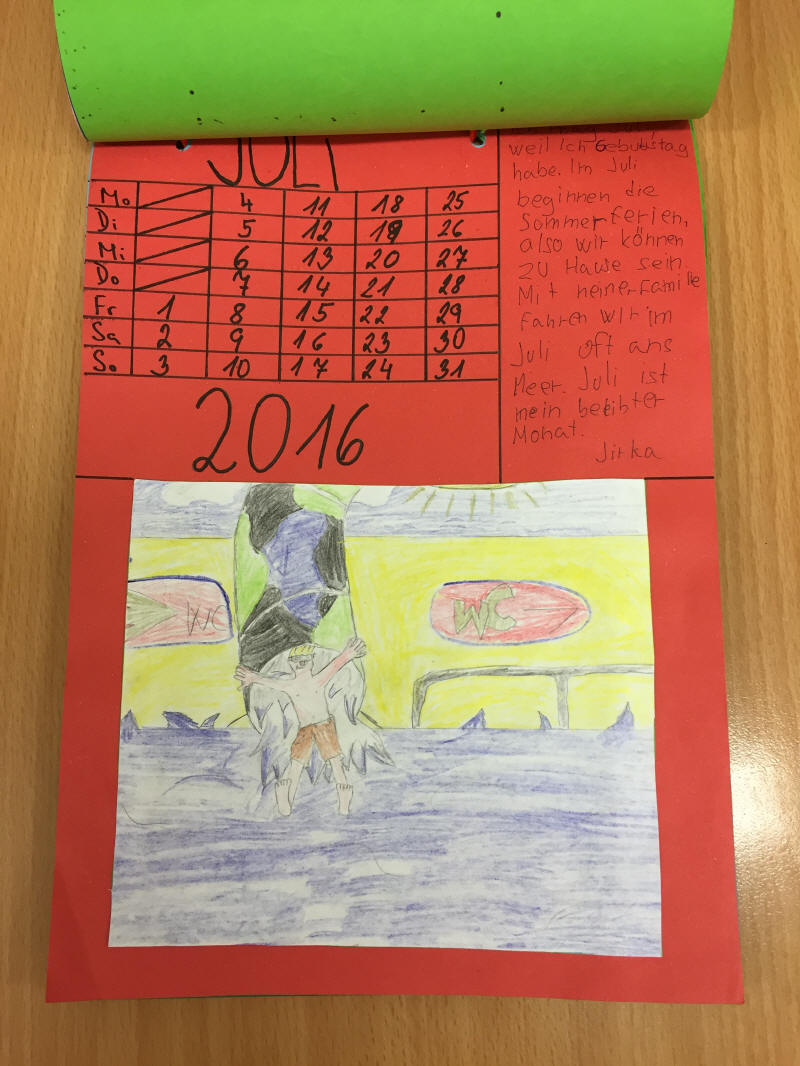 JULI
Mo 4 11 18 25
Di 5 12 19 26
Mi 6 13 20 27
Do 7 14 21 28
Fr 1 8 15 22 29
Sa 2 9 16 23 30
So 3 10 17 24 31
2016
weil ich Geburtstag
habe. Im Juli
beginnen die
Sommerferien,
also wir können
zu Hause sein.
Mit meiner Familie
fahren wir im
Juli oft ans
Meer. Juli ist
mein beleibter
Monat.
Jirka
WC
WC